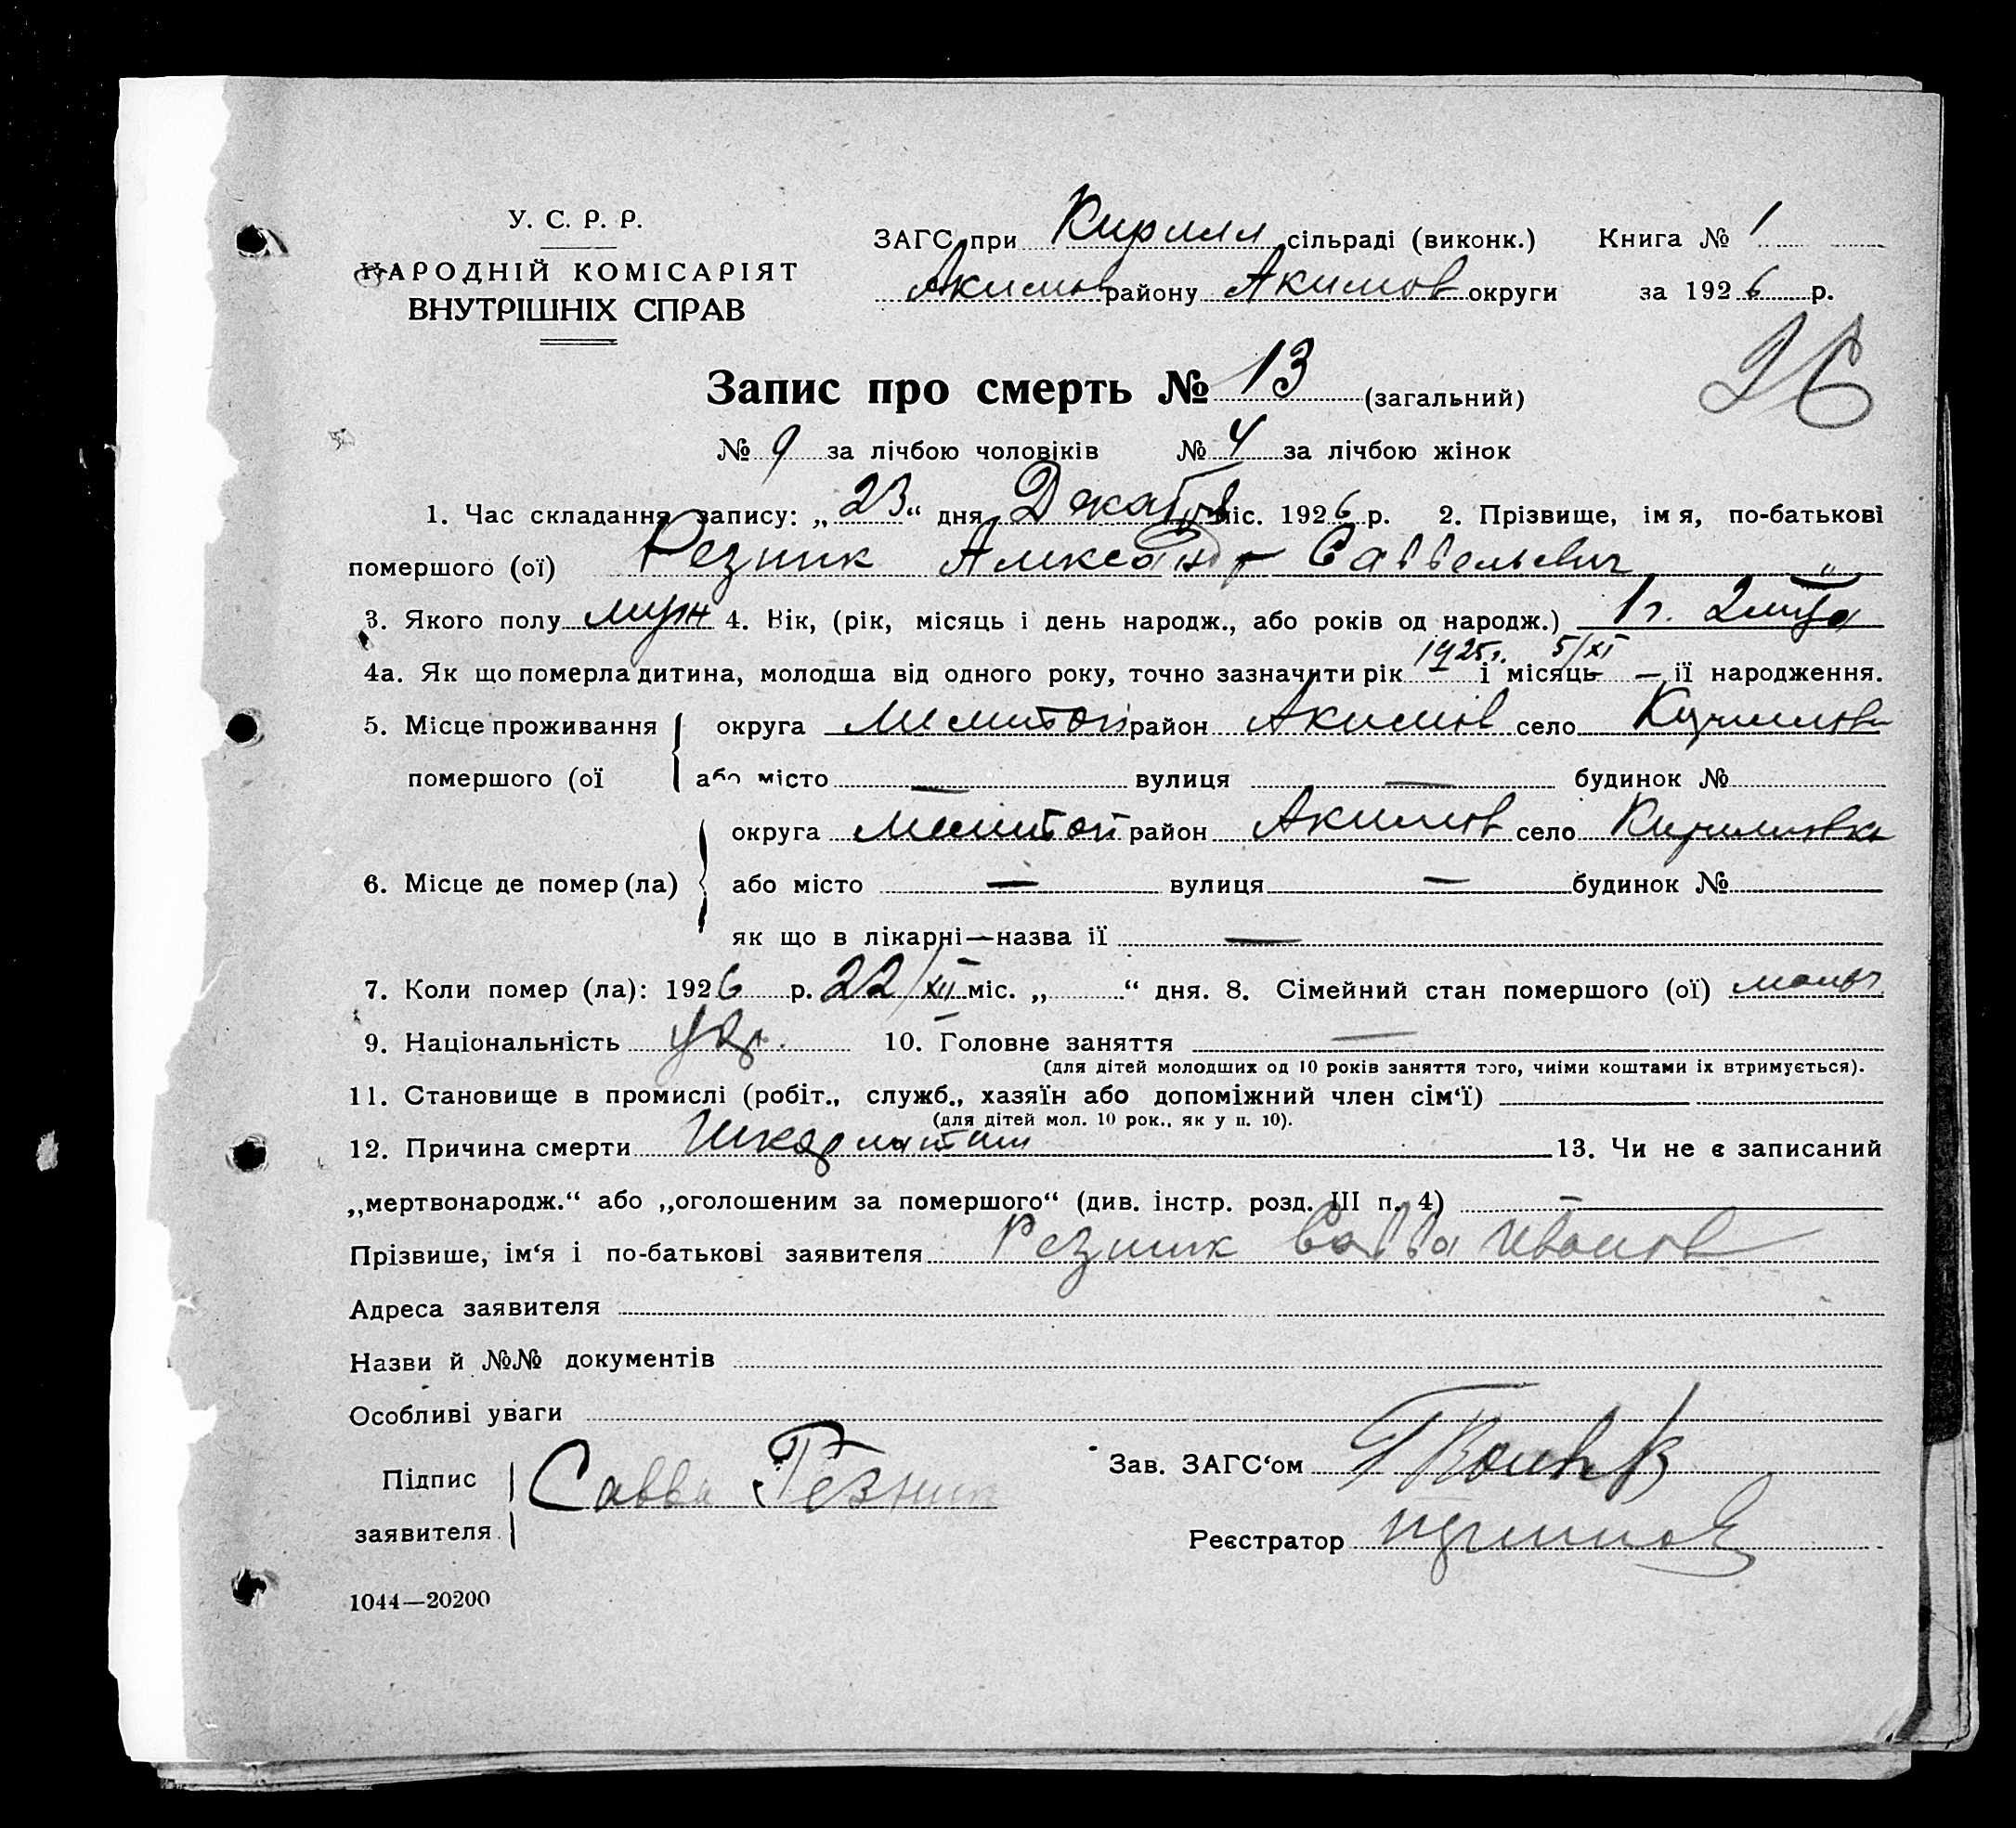 У. С. Р. Р.
НАРОДНІЙ КОМІСАРІЯТ
ВНУТРІШНІХ СПРАВ
ЗАГС при Кирилл сільраді (виконк.) Книга № 1
Акимов району Акимов округи за 1926 р.
26
Запис про смерть № 13 (загальний)
№ 9 за лічбою чоловіків № 4 за лічбою жінок
1. Час складання запису: „23“ дня Декабря міс. 1926 р. 2. Прізвище, імя, по-батькові
помершого (ої) Резник Александр Саввельевич
3. Якого полу муж 4. Вік, (рік, місяць і день народж., або років од народж.) 1 г. 2
4а. Як що померла дитина, молодша від одного року, точно зазначити рік 1925 г. і місяць 5/XI — її народження.
5. Місце проживання округа Мелитоп район Акимов село Кирилловка
помершого (ої або місто — вулиця — будинок №
6. Місце де помер (ла) округа Мелитоп район Акимов село Кирилловка
або місто — вулиця — будинок №
як що в лікарні—назва її —
7. Коли помер (ла): 1926 р. 22/XII міс. „ “ дня. 8. Сімейний стан помершого (ої)
9. Національність Укр. 10. Головне заняття —
(для дітей молодших од 10 років заняття того, чиїми коштами їх втримується).
11. Становище в промислі (робіт., служб., хазяїн або допоміжний член сім‘ї)
(для дітей мол. 10 рок., як у п. 10).
12. Причина смерти Шкарлатин 13. Чи не є записаний
„мертвонародж.“ або „оголошеним за помершого“ (див. інстр. розд. III п. 4) —
Прізвише, ім‘я і по-батькові заявителя Резник Савва Иванов
Адреса заявителя
Назви й №№ документів
Особливі уваги
Підпис заявителя Савва Резник
Зав. ЗАГС‘ом
Реєстратор
1044—20200